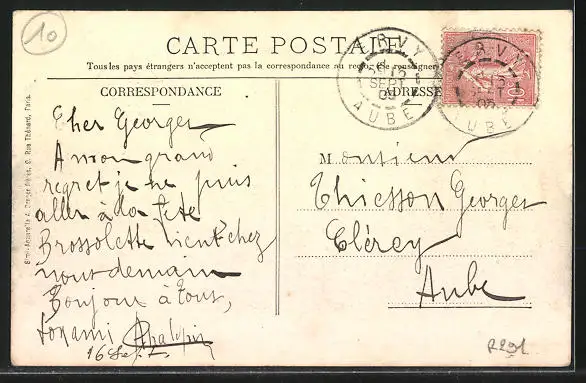 10
CARTE POSTALE
Tous les pays étrangers n'acceptent pas la correspondance au recto
CORRESPONDANCE
ADRESSE
ERVY
SEPT
05
AUBE
ERVY
AUBE
Cher Georges
A mon grand
regret je ne puis
aller à la fête
Brossolette vient chez
nous demain
Toujour à tous,
Ton ami Chalopin
16 Sept
Monsieur
Thiesson Georges
Clérey
Aube
R291